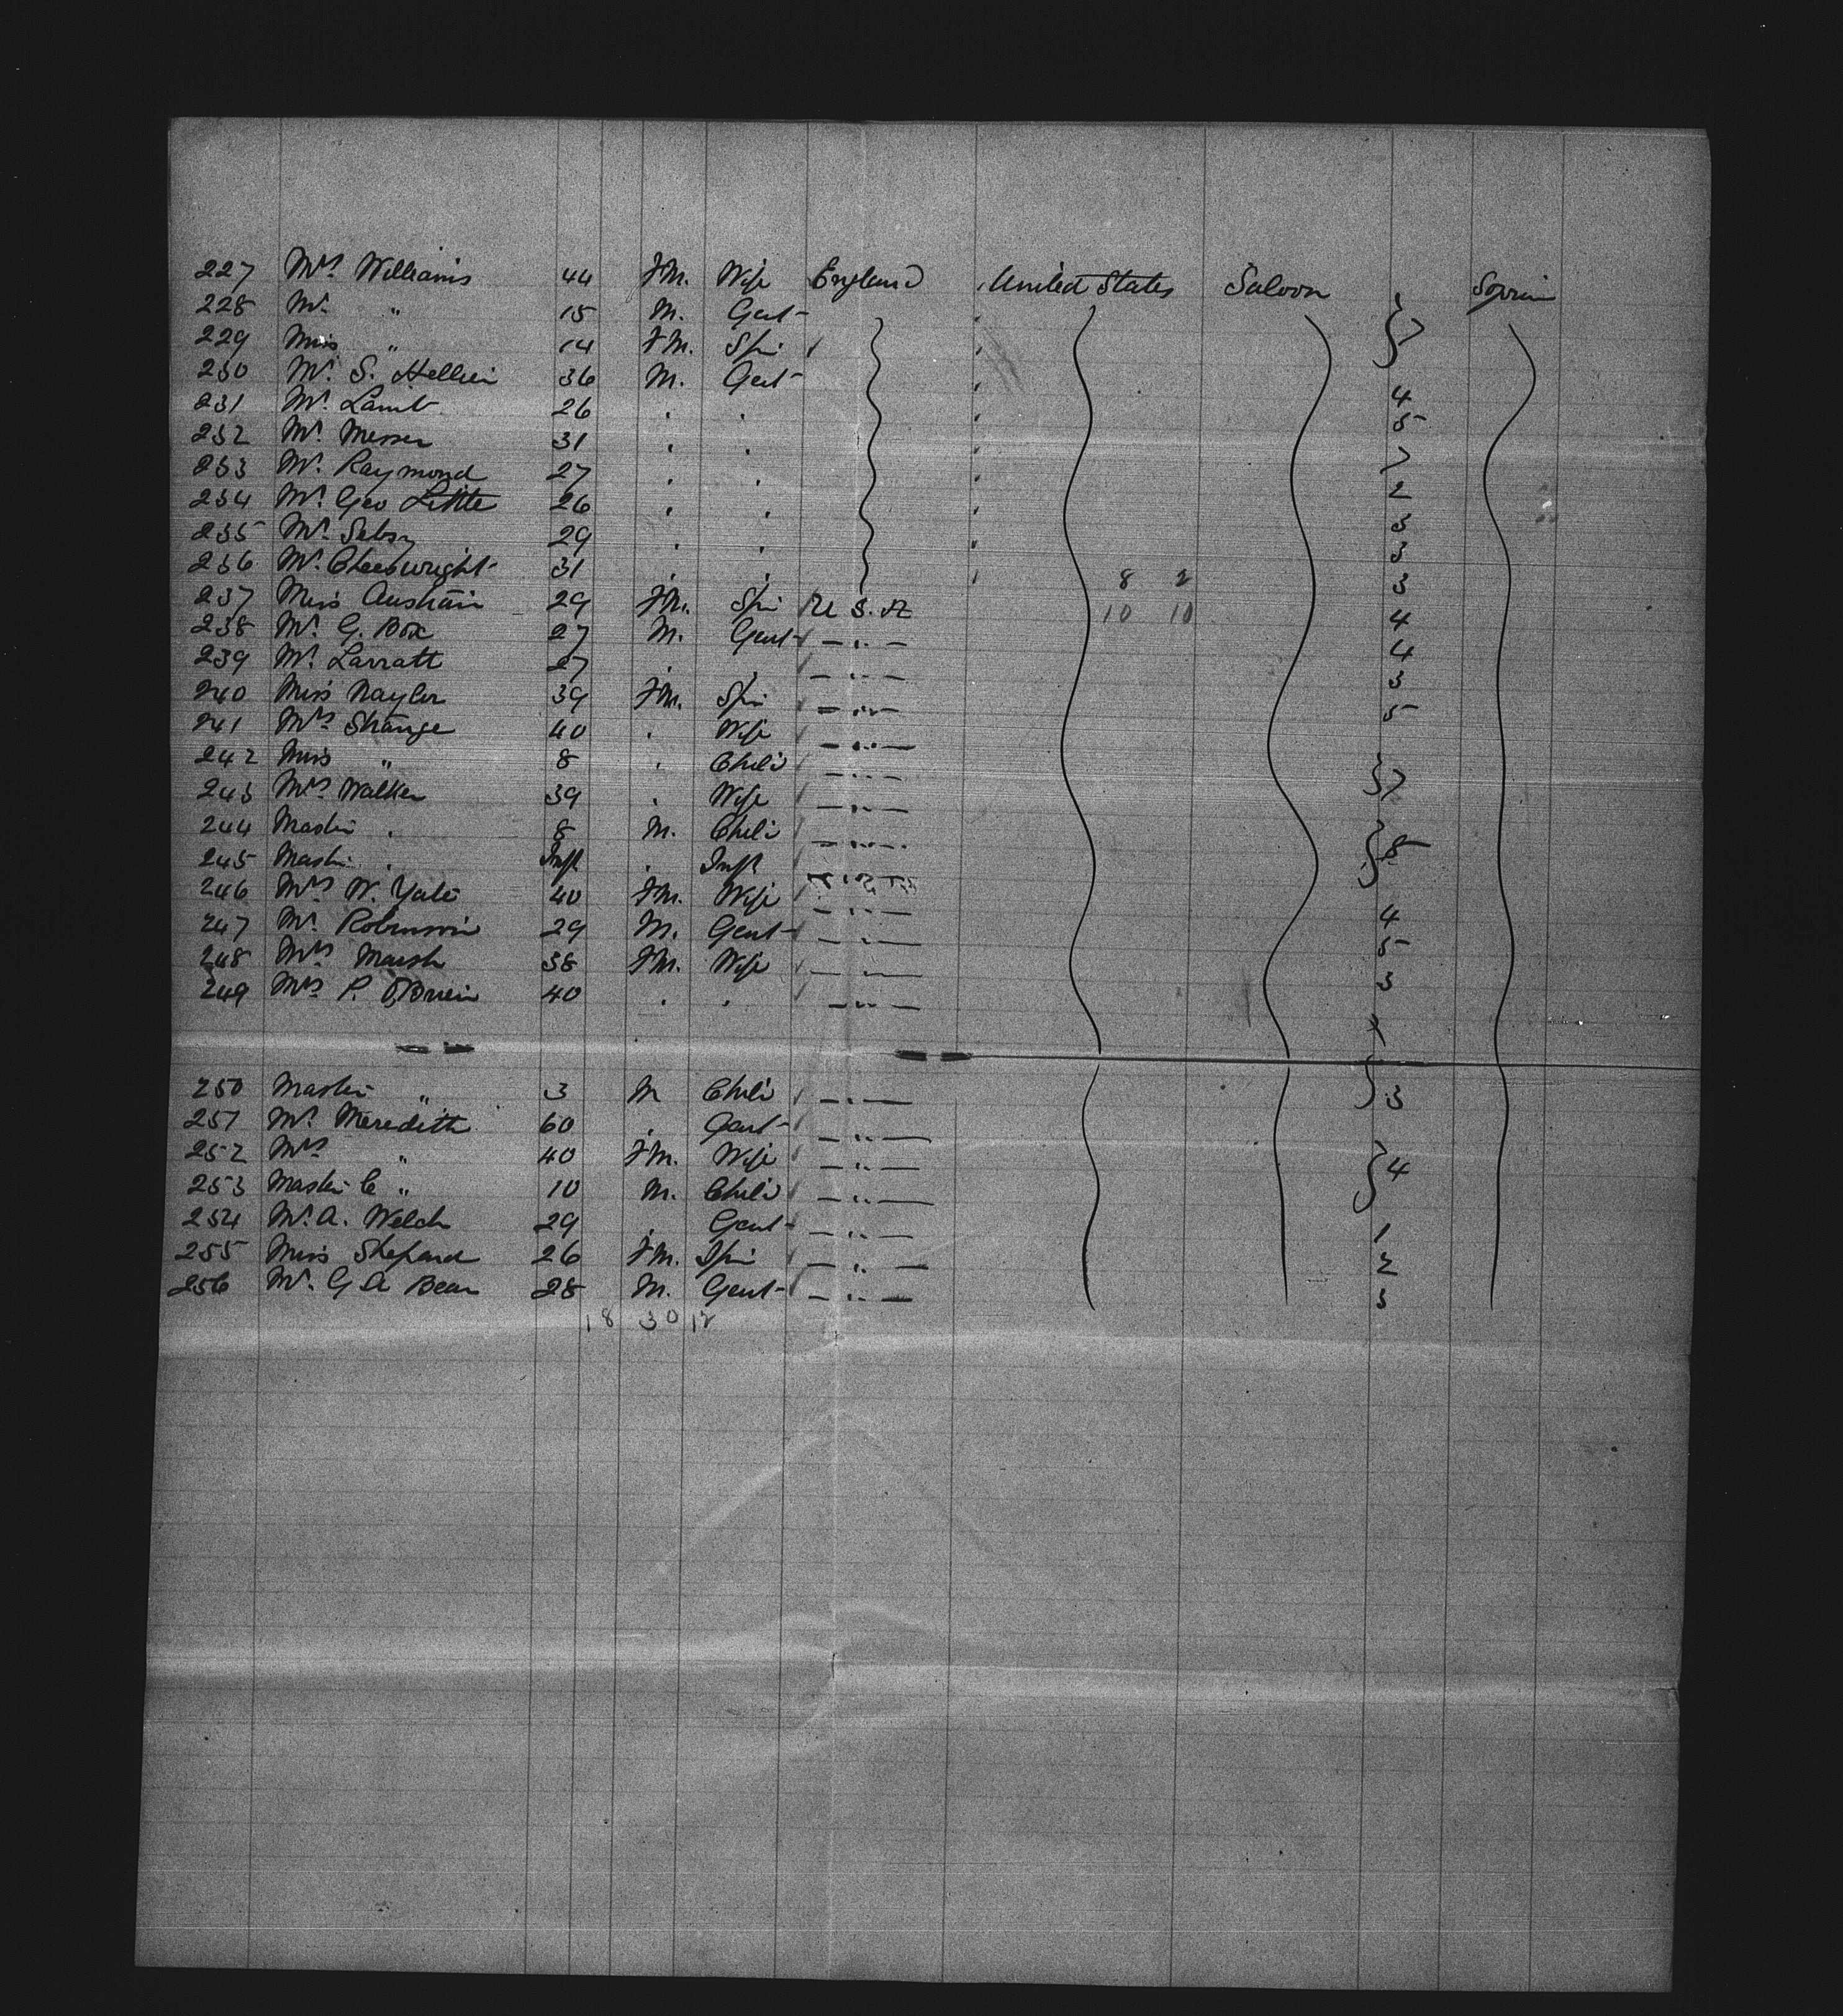 227 Mrs Williams 44 Fm. Wife England United States Saloon Sojourn
228 Mr. " 15 M. Gent
229 Miss " 14 Fm. Spi } 7
230 Mr. S. Hellier 36 M. Gent 4
231 Mr. Lamb 26 " " 5
232 Mr. Messer 31 " " 7
233 Mr. Raymond 27 " " 2
234 Mr. Geo Little 26 " " 3
235 Mr. Selby 29 " " 3
236 Mr. Cheeswright 31 " " 8 2 3
237 Miss Austain 29 Fm. Spi U. S. A 10 10 4
238 Mr. G. Box 27 M. Gent — " — 4
239 Mr. Larratt 27 " " — " — 3
240 Miss Naylor 39 Fm. Spi — " — 5
241 Mrs Strange 40 " Wife — " —
242 Miss " 8 " Child — " — } 7
243 Mrs Walker 39 " Wife — " —
244 Master " 8 M. Child — " — } 5
245 Master " Inft " Inft — " —
246 Mrs W. Yale 40 Fm. Wife — " — 4
247 Mr. Robinson 29 M. Gent — " — 5
248 Mrs Marsh 38 Fm. Wife — " — 3
249 Mrs P. O'Brien 40 " " — " —
250 Master " 3 M Child — " — } 3
251 Mr. Meredith 60 " Gent — " —
252 Mrs " 40 Fm. Wife — " — } 4
253 Master C " 10 M. Child — " —
254 Mr. A. Welch 29 " Gent — " — 1
255 Miss Shepard 26 Fm. Spi — " — 2
256 Mr. G A Bear 28 M. Gent — " — 3
18 30 12